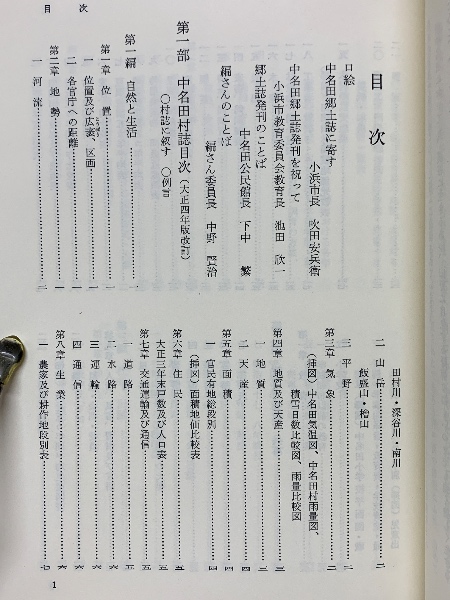 目次
目次
口絵
中名田郷土誌に寄す
小浜市長 吹田安兵衛
中名田郷土誌発刊を祝って
小浜市教育委員会教育長 池田欣一
郷土誌発刊のことば
中名田公民館長 下中繁
編さんのことば
編さん委員長 中野賢治
第一部 中名田村誌目次(大正四年版改訂)
〇村誌に叙す 〇例言
第一編 自然と生活
第一章 位置……一
一 位置及び広袤、区画……一
二 各官庁への距離……一
第二章 地勢……二
一 河流……二
田村川・深谷川・南川
二 山岳……二
飯盛山・檜山
三 平野……二
第三章 気象……二
(挿図)中名田気温図、中名田村雨量図、
積雪日数比較図、雨量比較図
第四章 地質及び天産……三
一 地質……三
二 天産……四
第五章 面積……四
一 官民有地総段別……四
(挿図)面積地価比較表
第六章 住民……五
大正三年末戸数及び人口表……五
第七章 交通運輸及び通信……五
一 道路……五
二 水路……六
三 運輸……六
四 通信……六
第八章 生業……六
一 農家及び耕作地段別表……七
1